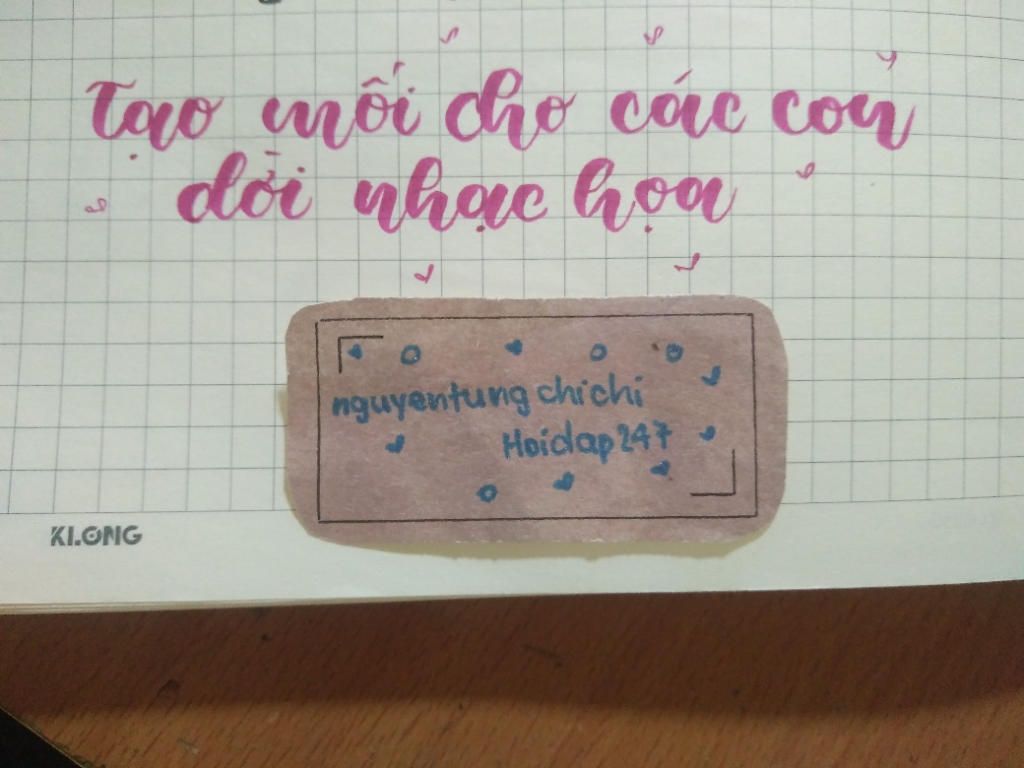 Tạo mối cho các con
dời nhạc họa
nguyentungchichi
Hoidap247
KLONG